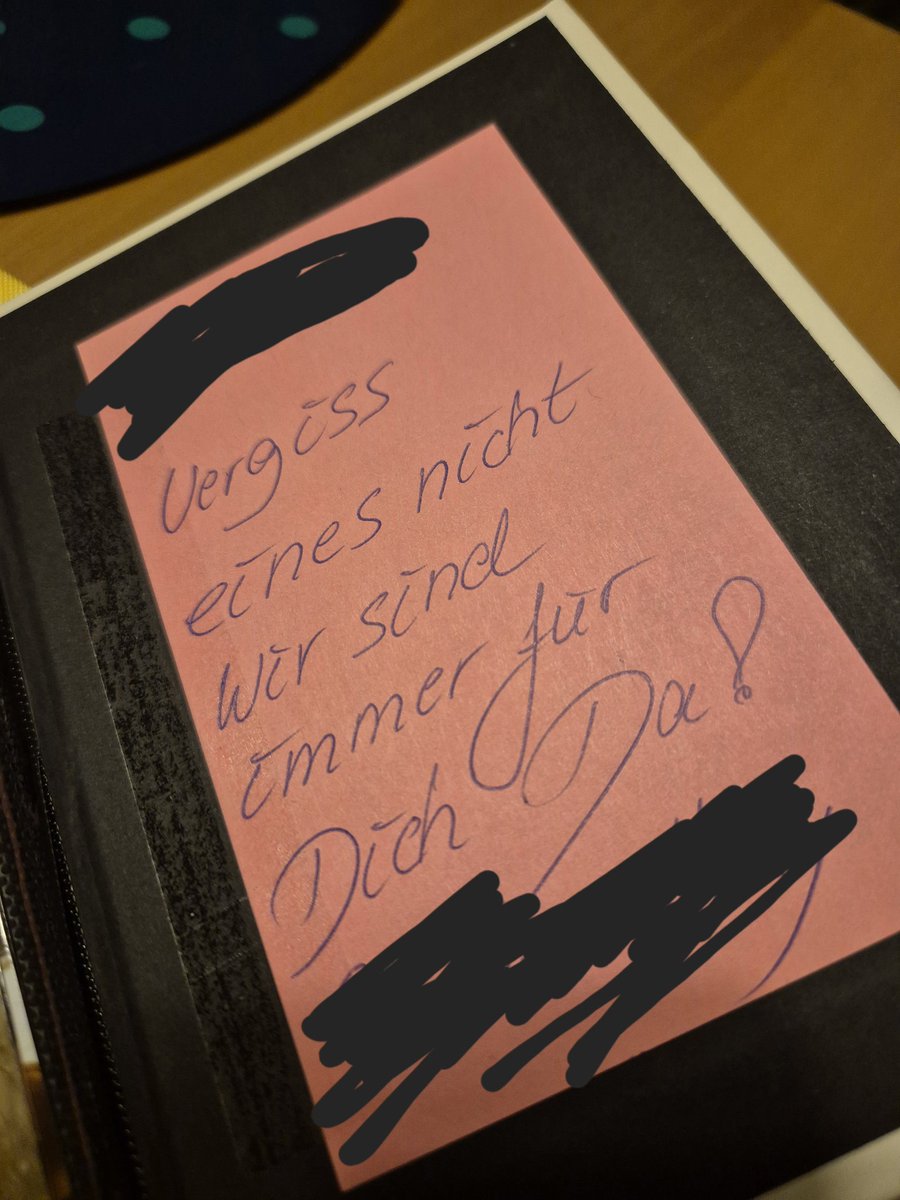 Vergiss
eines nicht
Wir sind
immer für
Dich Da!